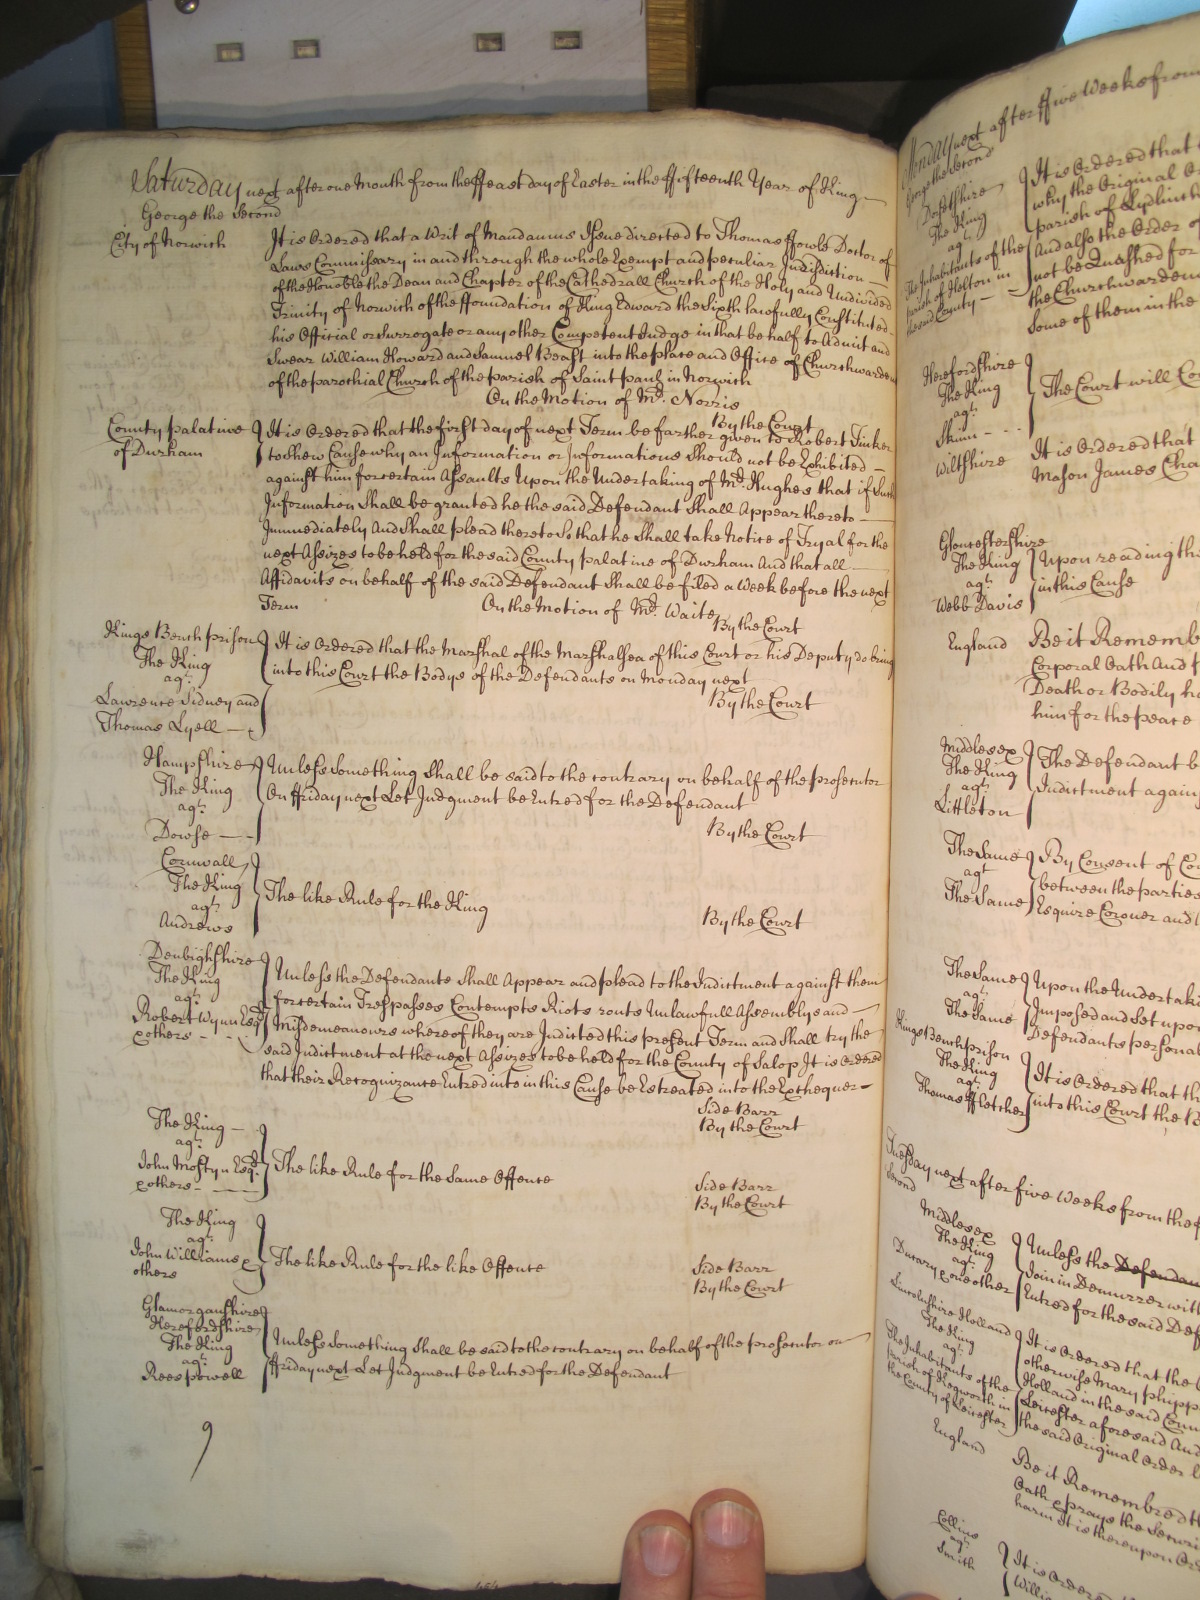 Saturday next after one Month from the ffeast day of Easter in the ffifteenth Year of King
George the Second
City of Norwich
It is Ordered that a Writ of Mandamus Issue directed to Thomas ffowle Doctor of
Laws Commissary in and through the whole Exempt and peculiar Jurisdiction
of the Honoble the Dean and Chapter of the Cathedrall Church of the Holy and Undivided
Trinity of Norwich of the ffoundation of King Edward the Sixth lawfully Constituted
his Official or Surrogate or any other Competent Judge in that behalf to Admit and
Swear William Howard and Samuel Beast into the place and Office of Churchwarden
of the parochial Church of the parish of Saint pauls in Norwich
On the Motion of Mr. Norris
By the Court
County palatine
of Durham
It is Ordered that the first day of next Term be farther given to Robert Tinker
to shew Cause why an Information or Informations Should not be Exhibited
against him for certain Assaults Upon the Undertaking of Mr. Hughes that if Such
Information Shall be granted he the said Defendant Shall Appear thereto
Immediately And Shall plead thereto So that he Shall take Notice of Tryal for the
next Assizes to be held for the said County palatine of Durham And that all
Affidavits on behalf of the said Defendant Shall be filed a Week before the next
Term
On the Motion of Mr. Waite
By the Court
Kings Bench prison
The King
agt.
Lawrence Sidney and
Thomas Lyell
It is Ordered that the Marshal of the Marshalsea of this Court or his Deputy do bring
into this Court the Bodys of the Defendants on Monday next
By the Court
Hampshire
The King
agt.
Dowse
Unless Something Shall be said to the contrary on behalf of the prosecutor
On ffriday next Let Judgment be Entred for the Defendant
By the Court
Cornwall
The King
agt.
Andrews
The like Rule for the King
By the Court
Denbighshire
The King
agt.
Robert Wynn Esqr.
& others
Unless the Defendants Shall Appear and plead to the Indictment against them
for certain Trespasses Contempts Riots routs Unlawfull Assemblys and
Misdemeanours whereof they are Indicted this present Term and Shall try the
said Indictment at the next Assizes to be held for the County of Salop It is Ordered
that their Recognizance Entred into in this Cause be Estreated into the Exchequer
Side Barr
By the Court
The King
agt.
John Mostyn Esqr.
& others
The like Rule for the Same Offence
Side Barr
By the Court
The King
agt.
John Williams &
others
The like Rule for the like Offence
Side Barr
By the Court
Glamorganshire
Herefordshire
The King
agt.
Rees Powell
Unless Something Shall be said to the contrary on behalf of the prosecutor on
ffriday next Let Judgment be Entred for the Defendant
9
Monday next after ffive Weeks from
George the Second
Dorsetshire
The King
agt.
The Inhabitants of the
parish of in
the said County
It is Ordered that
why the Original
parish of
And also the Order of
not be Quashed for
the Churchwardens
Some of them in the
Herefordshire
The King
agt.
Skinn
The Court will
Wiltshire
It is Ordered that
Mason James
Gloucestershire
The King
agt.
Webb Davis
Upon reading the
in this Cause
England
Be it Rememb
Corporal Oath And
Death or Bodily
him for the peace
Middlesex
The King
agt.
Littleton
The Defendant
Indictment again
The Same
agt.
The Same
By Consent of
between the parties
Esquire Coroner and
The Same
agt.
The Same
Upon the Undertaki
Imposed and Set upon
Defendants personal
Kings Bench prison
The King
agt.
Thomas ffletcher
It is Ordered that
into this Court the
Tuesday next after five Weeks from the
Second
Middlesex
The King
agt.
& one other
Unless the Defendan
Join in Demurrer with
Entred for the said
Lincolnshire Holland
The King
agt.
The Inhabitants of the
parish of Kegworth in
the County of Leicester
It is Ordered that the
otherwise Mary
Holland in the said
Leicester aforesaid And
the said Original Order
England
Be it Remembred
Oath & prays the
harm It is thereupon
Collins
agt.
Smith
It is Ordered
Willi